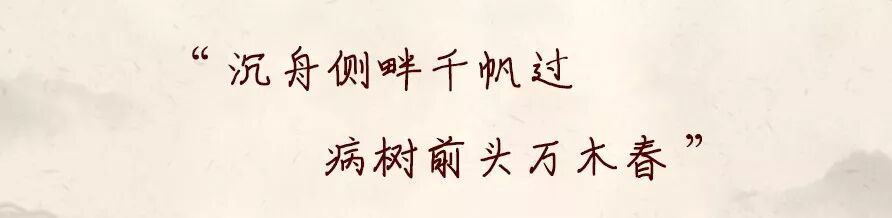 “沉舟侧畔千帆过
病树前头万木春”